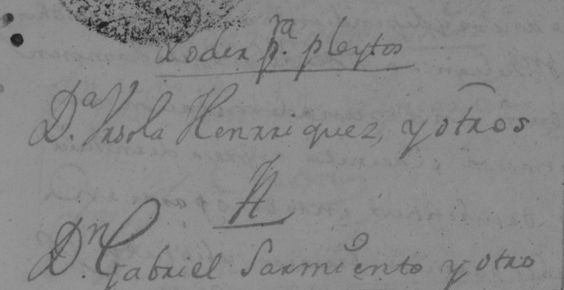 Poder pª. pleytos
Dª. Ursola Henrriquez, y otros
A
Dn. Gabriel Sarmiento y otro